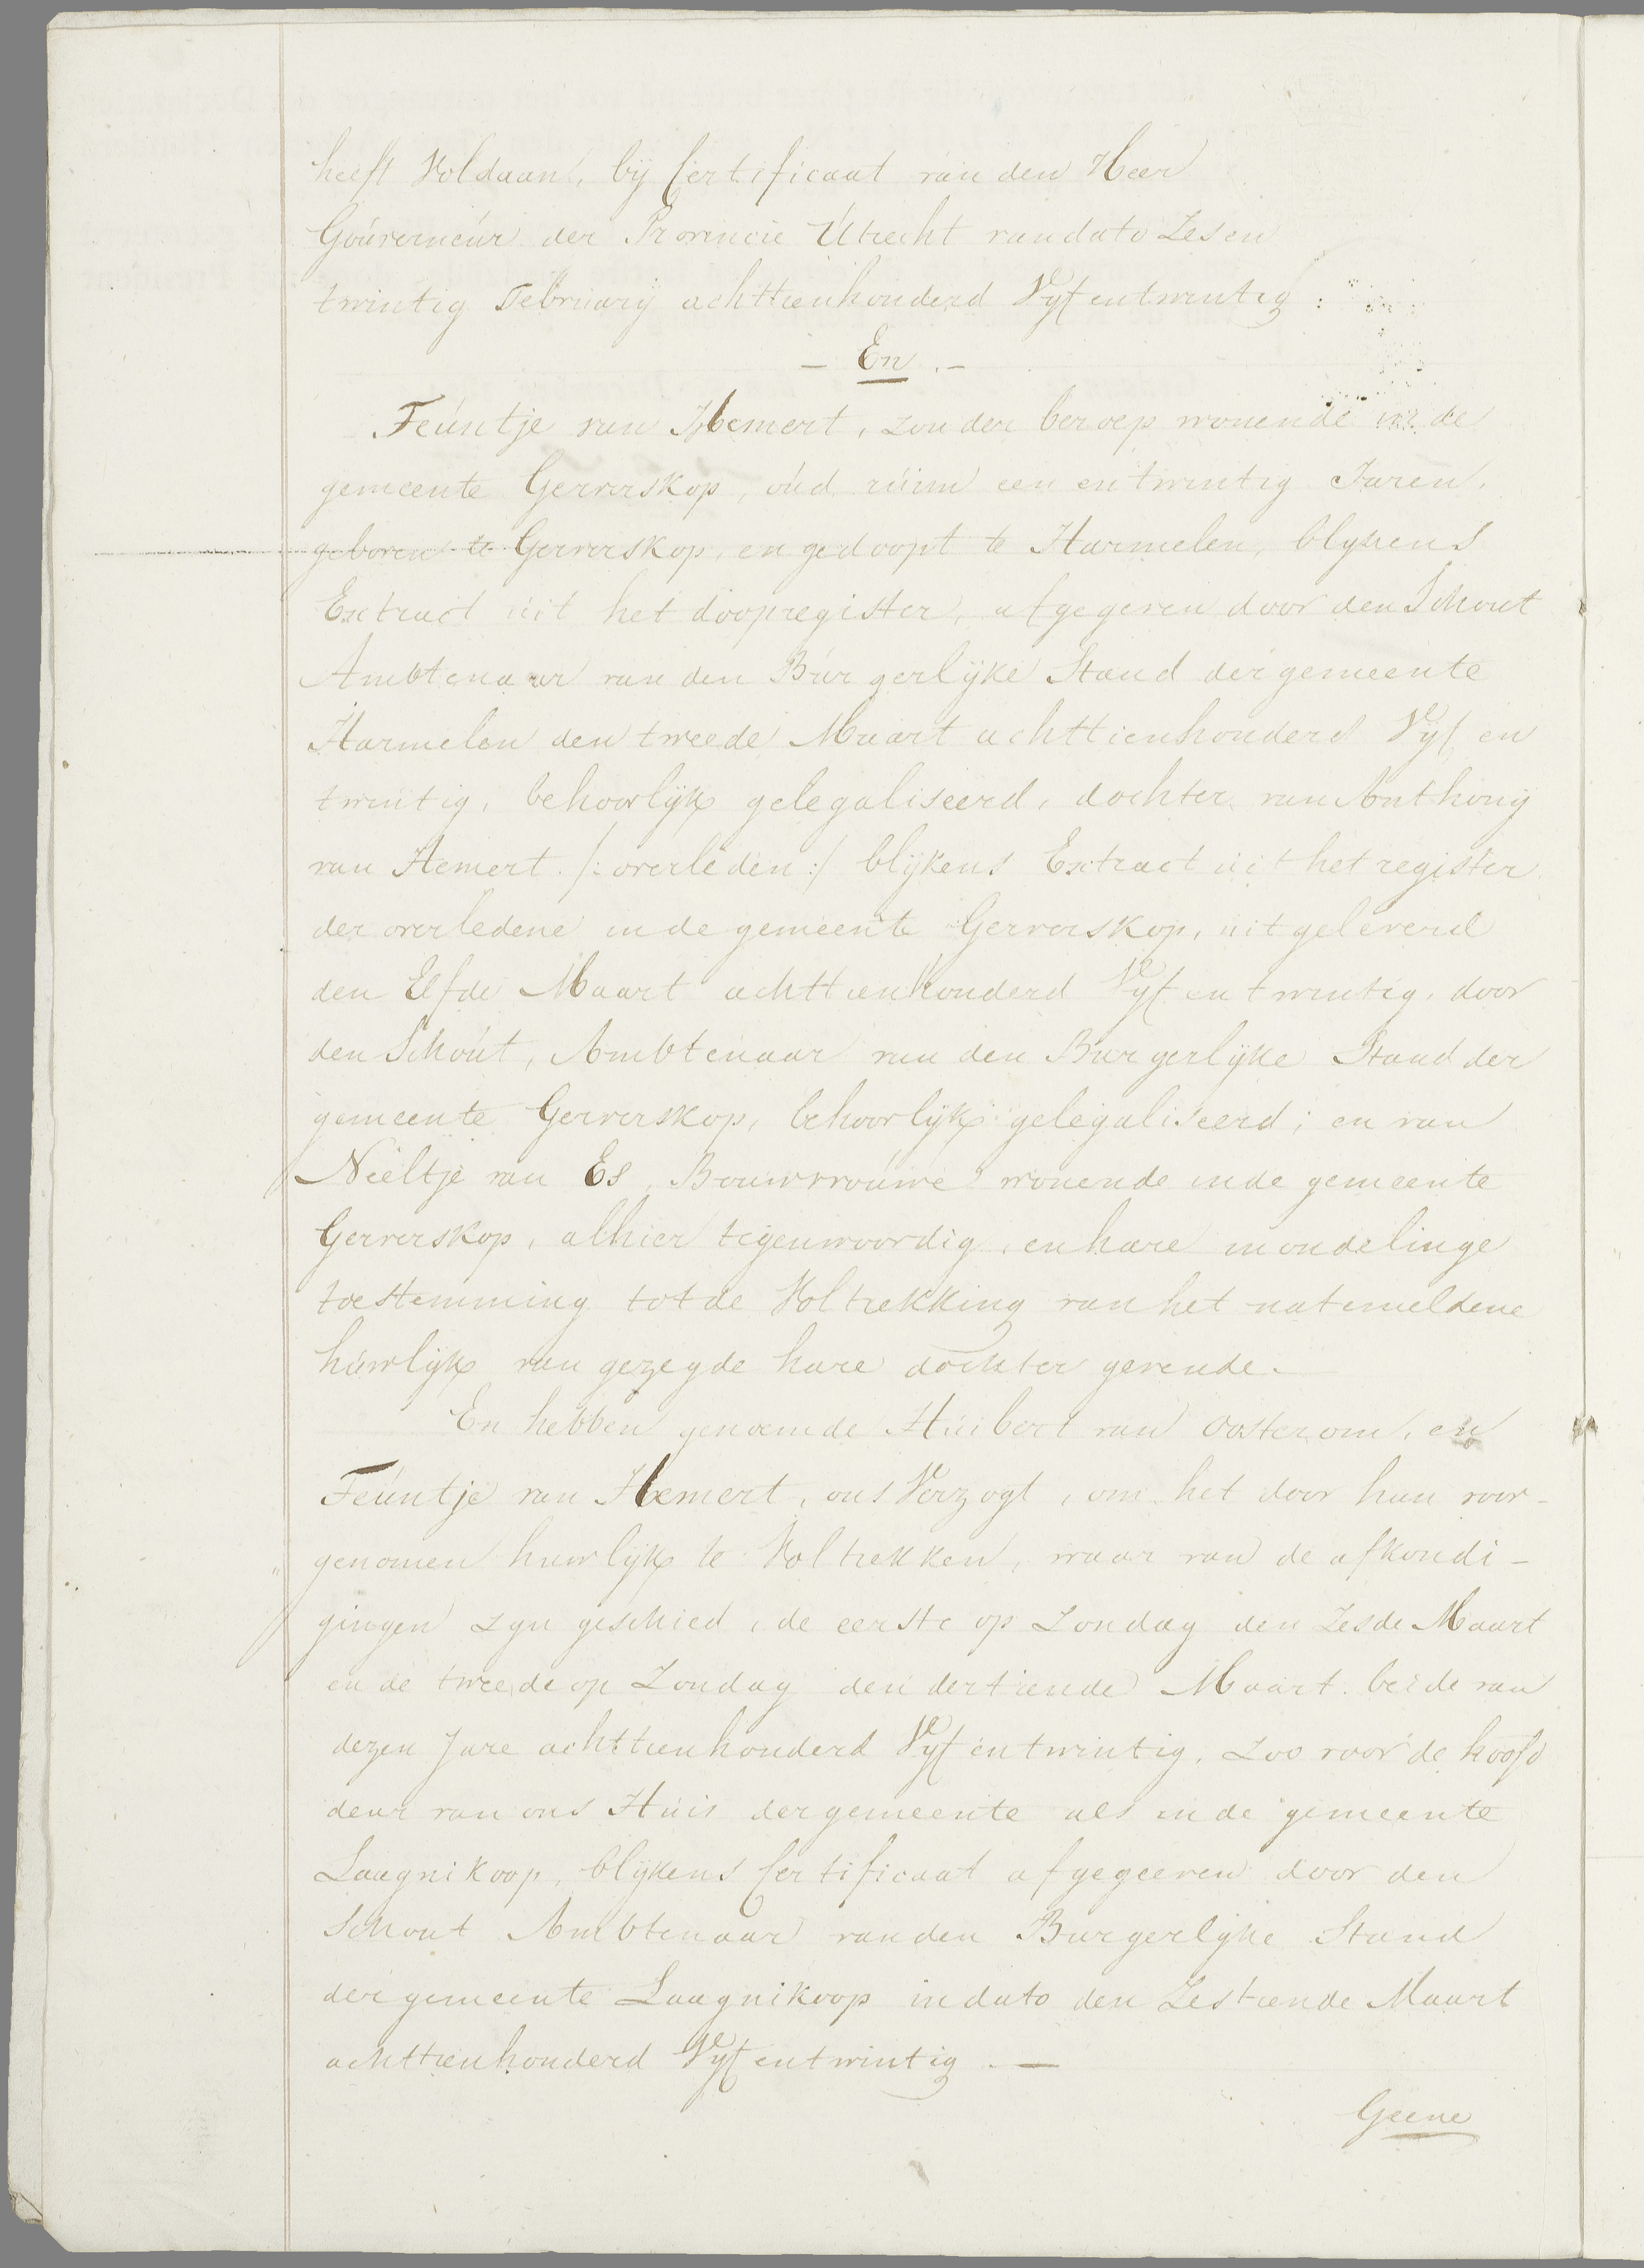 heeft Voldaan, by Certificaat van den Heer
Gouverneur der Provincie Utrecht vandato Zesen
twintig February achttienhonderd Vyfentwintig:
- En. -
Teúntje van Hemert, zonder beroep wonende in de
gemeente Gerverskop, oúd rúim een entwintig Jaren,
geboren te Gerverskop, en gedoopt te Harmelen, blykens
Extract uit het doopregister, afgegeven door den Schout
Ambtenaar van den Burgerlijke Stand der gemeente
Harmelen den tweede Maart achttienhonderd Vyf en
twintig, behoorlijk gelegaliseerd, dochter van Anthonij
van Hemert /: overleden :/ blijkens Extract uit het register
der overledene in de gemeente Gerverskop, uitgeleverd
den Elfde Maart achttienhonderd Vyf entwintig, door
den Schoút, Ambtenaar van den Burgerlijke Stand der
gemeente Gerverskop, behoorlijk gelegaliseerd; en van
Neeltje van Es, Bouwvrouwe wonende in de gemeente
Gerverskop, alhier tegenwoordig, en hare mondelinge
toestemming tot de Voltrekking van het natemeldene
húwlijk van gezegde hare dochter gevende.
En hebben genoemde Huibert van Oosterom, en
Teúntje van Hemert, ons Verzogt, om het door hun voor-
genomen huwlijk te Voltrekken, waar van de afkondi-
gingen zyn geschied, de eerste op Zondag den Zesde Maart
en de tweede op Zondag den dertiende Maart beide van
dezen Jare achttienhonderd Vyf entwintig, zoo voor de hoofd
deur van ons Huis der gemeente als in de gemeente
Laagnikoop, blijkens Certificaat afgegeeven door den
Schout Ambtenaar van den Burgerlyke Stand
der gemeente Laagnikoop in dato den Zestiende Maart
achttienhonderd Vyf entwintig. —
Geene